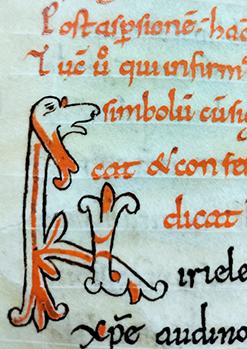 Post asp̄sionē. hac
T uc̄ ū qui infirm
simbolū cūsiq
cat & confes
dicat
K iriele
xp̄e audino